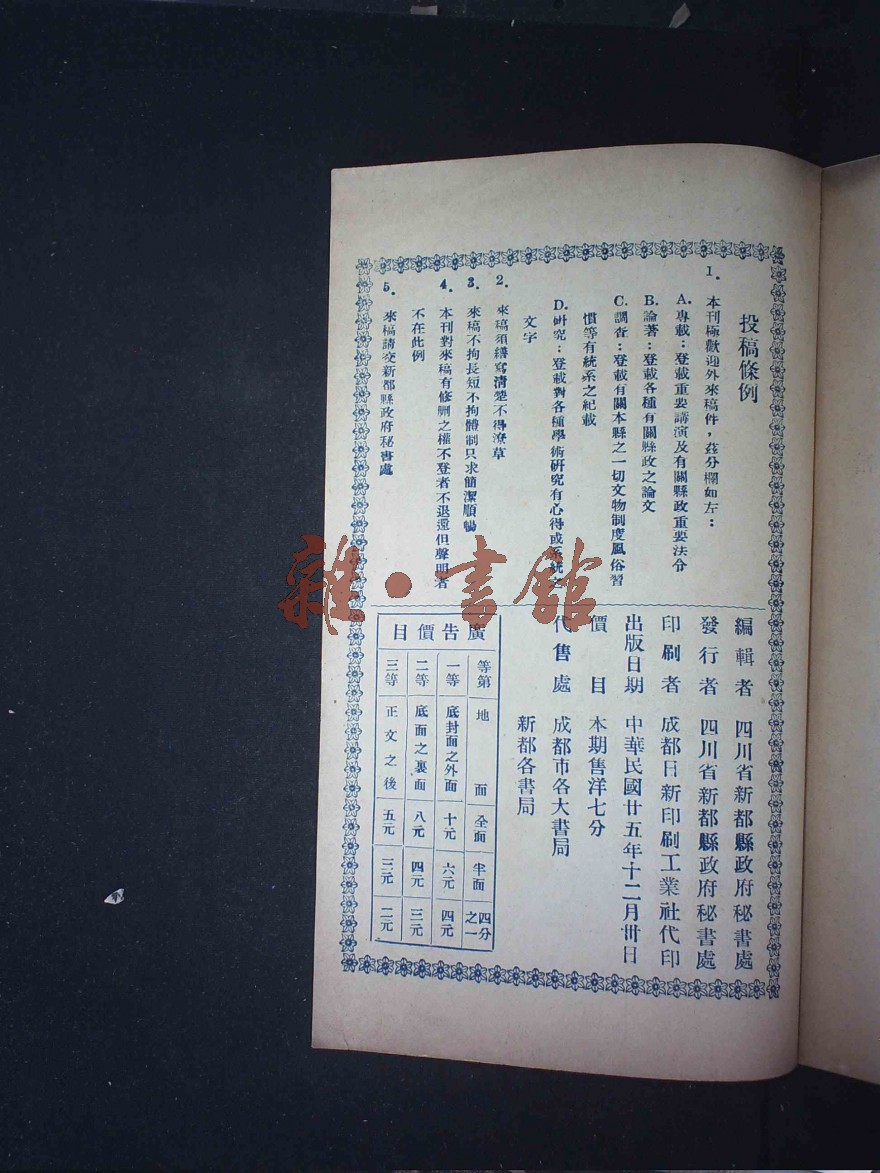 投稿條例
1. 本刊極歡迎外來稿件，茲分欄如左：
A. 專載：登載重要講演及有關縣政重要法令
B. 論著：登載各種有關縣政之論文
C. 調查：登載有關本縣之一切文物制度風俗習
慣等有統系之紀載
D. 研究：登載對各種學術研究有心得或系統之
文字
2. 來稿須繕寫清楚不得潦草
3. 來稿不拘長短不拘體制只求簡潔順暢
4. 本刊對來稿有修刪之權不登者不退還但聲明者
不在此例
5. 來稿請交新都縣政府秘書處
編輯者 四川省新都縣政府秘書處
發行者 四川省新都縣政府秘書處
印刷者 成都日新印刷工業社代印
出版日期 中華民國廿五年十二月卅日
價目 本期售洋七分
代售處 成都市各大書局
新都各書局
廣告價目
等第 地面 全面 半面 四分之一
一等 底封面之外面 十元 六元 四元
二等 底面之裏面 八元 四元 三元
三等 正文之後 五元 三元 二元
雜·書館